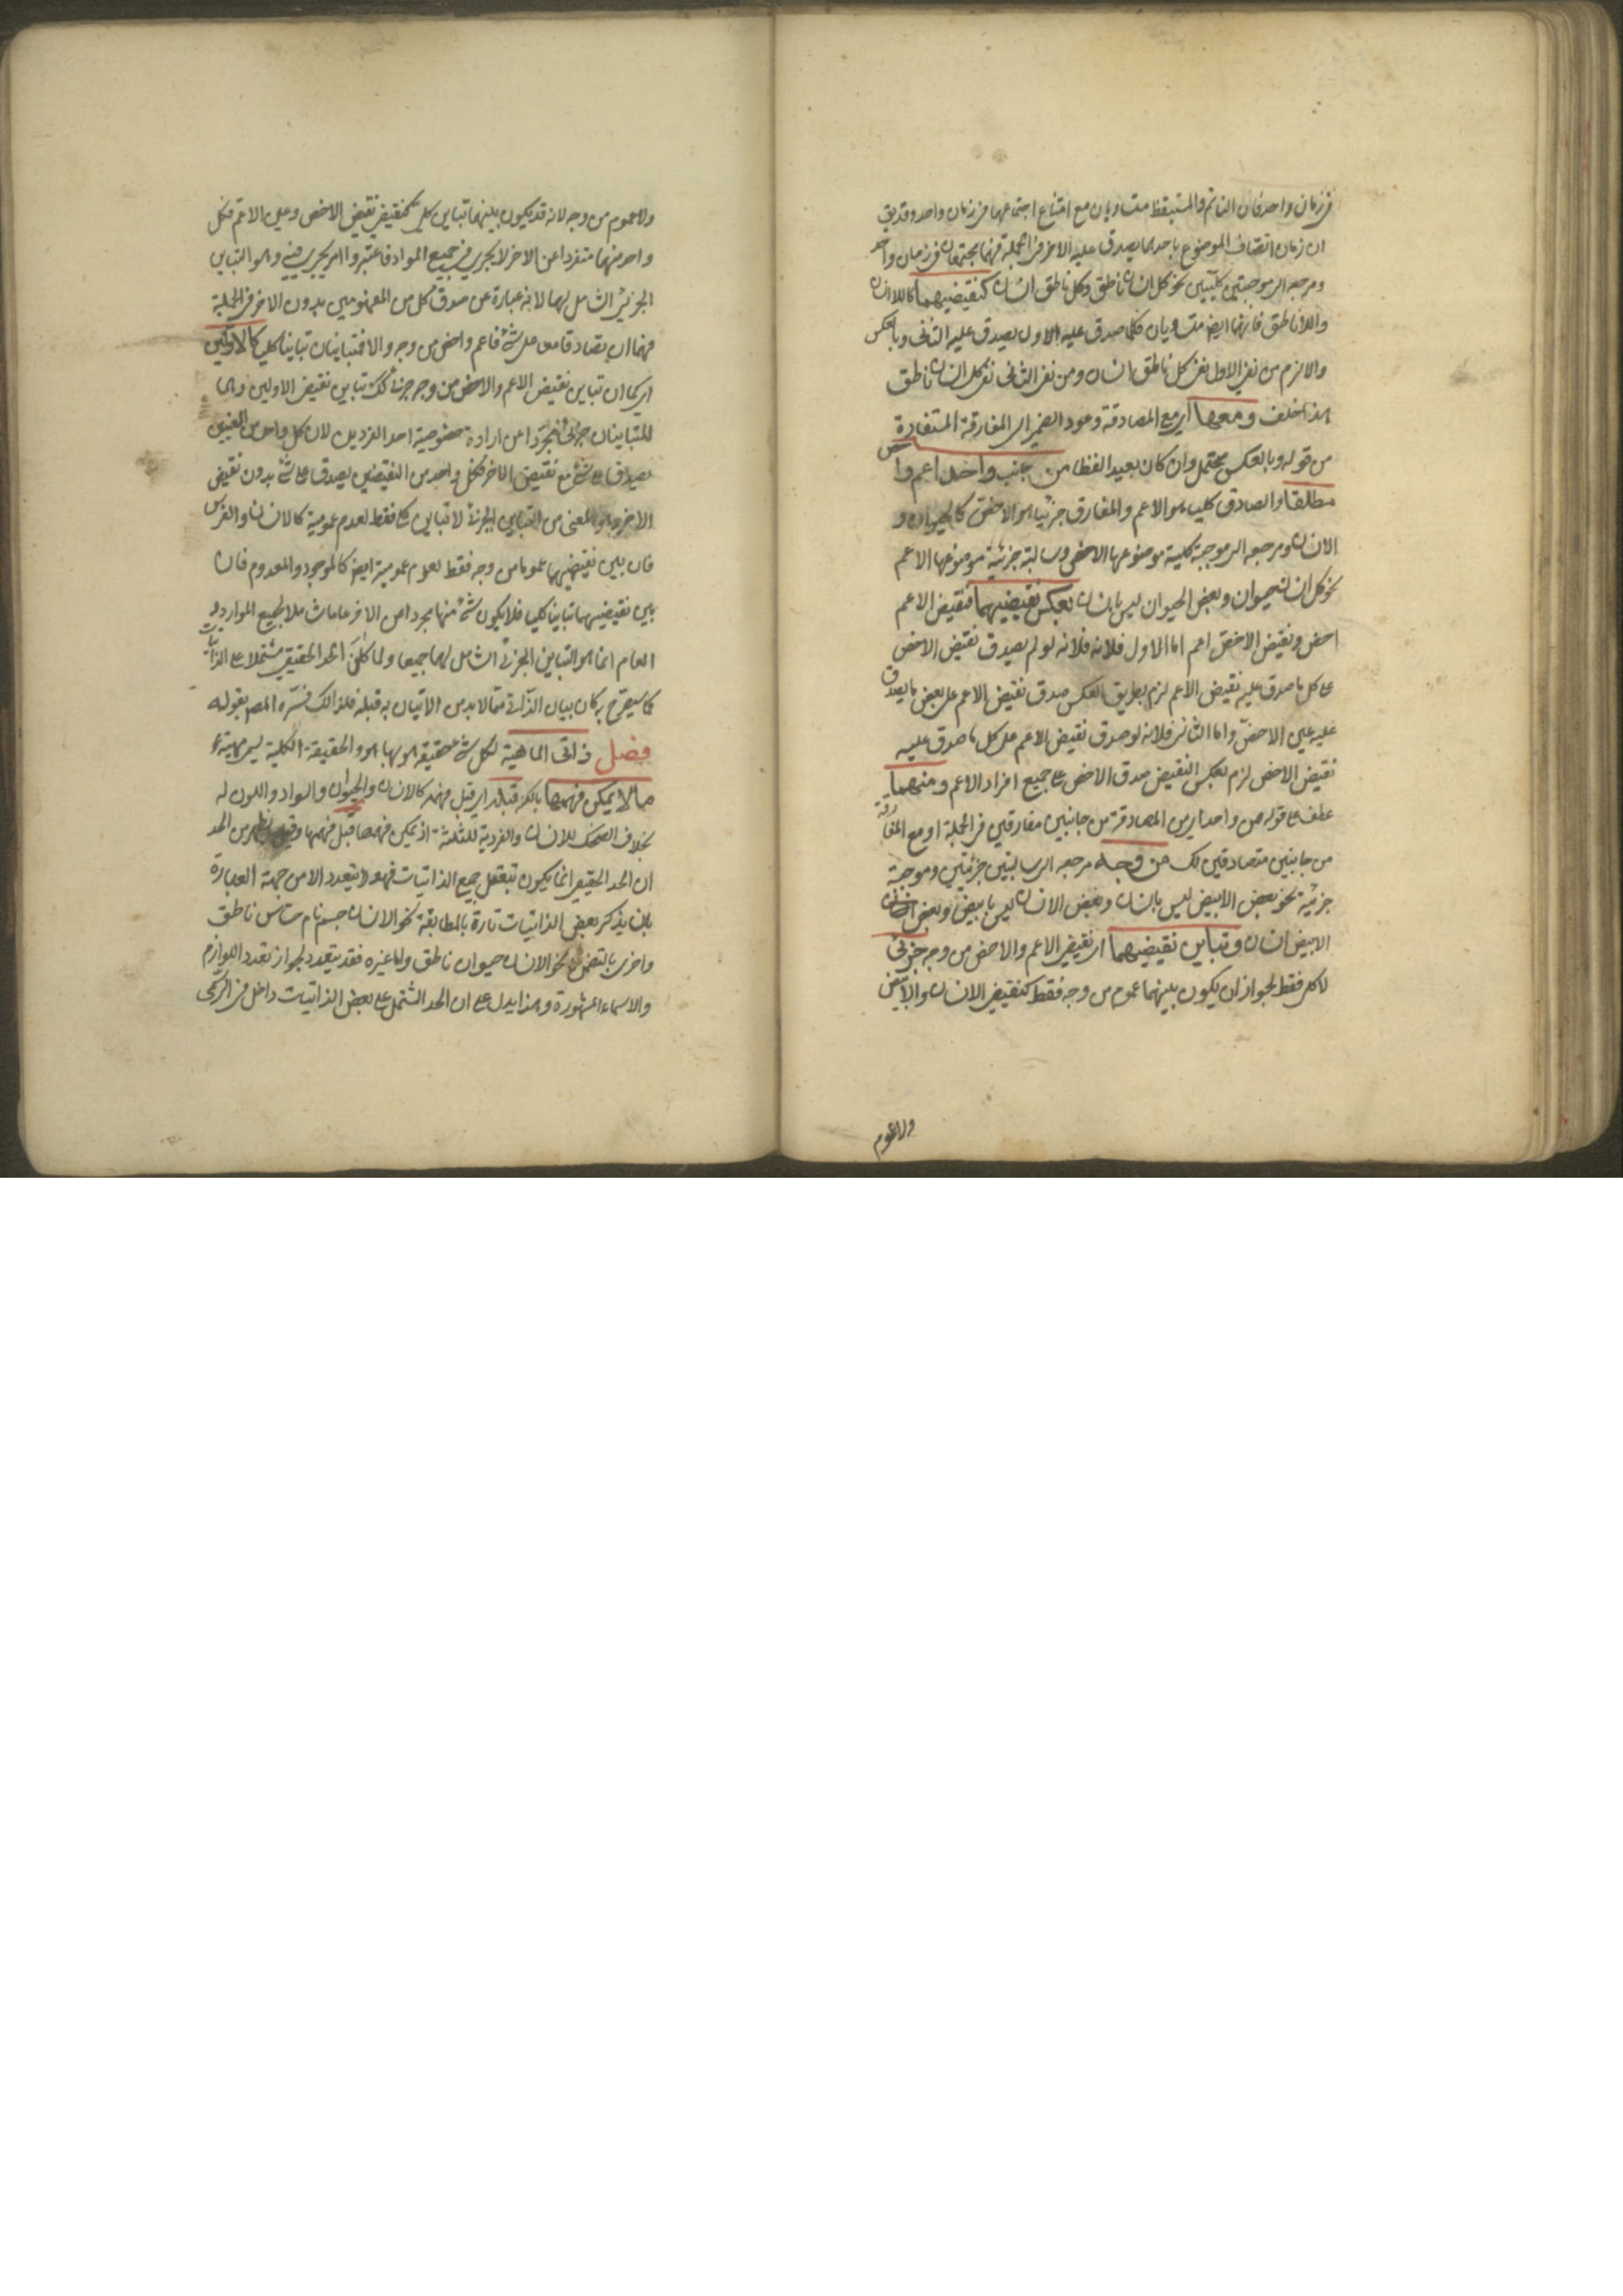 في زمان واحد فان النائم والمستيقظ متساويان مع امتناع اجتماعهما في زمان واحد وقد يق
ان زمان اتصاف الموضوع باحدهما يصدق عليه الاخر في الجملة فهما مجتمعان في زمان واحد
ومرجعه الى موجبتين كليتين نحو كل انسان ناطق وكل ناطق انسان كنقيضيهما كاللاانسان
واللاناطق فانهما ايضا متساويان فكلما صدق عليه الاول يصدق عليه الثاني وبالعكس
والا لزم من نفي الاول نفي كل ناطق انسان ومن نفي الثاني نفي كل انسان ناطق
هذا خلف ومعها اي مع المصادقة وعود الضمير الى المفارقة المستفادة
من قوله وبالعكس محتمل وان كان بعيدا لفظا من جانب واحد اعم واخص
مطلقا والصادق كليا هو الاعم والمفارق جزئيا هو الاخص كالحيوان و
الانسان ومرجعه الى موجبة كلية موضوعها الاخص وسالبة جزئية موضوعها الاعم
نحو كل انسان حيوان وبعض الحيوان ليس بانسان بعكس نقيضيهما فنقيض الاعم
اخص ونقيض الاخص اعم اما الاول فلانه فلانه لو لم يصدق نقيض الاخص
على كل ما صدق عليه نقيض الاعم لزم بطريق العكس صدق نقيض الاعم على بعض ما يصدق
عليه عين الاخص واما الثاني فلانه لو صدق نقيض الاعم على كل ما صدق عليه
نقيض الاخص لزم بعكس النقيض صدق الاخص على جميع افراد الاعم ومنهما
عطف على قوله من واحد اي من المصادقة من جانبين مفارقين في الجملة او مع المفارقة
من جانبين متصادقين لك من وجه مرجعه الى سالبتين جزئيتين وموجبة
جزئية نحو بعض الابيض ليس بانسان وبعض الانسان ليس بابيض وبعض
الابيض انسان وتباين نقيضيهما اي نقيض الاعم والاخص من وجه جزئي
لا كلي فقط لجواز ان يكون بينهما عموم من وجه فقط كنقيض الانسان والابيض
ولا عموم
ولا عموم من وجه لانه قد يكون بينهما تباين كلي كنقيض نقيض الاخص وعين الاعم فكل
واحد منهما منفردا عن الاخر لا يجري في جميع المواد فاعتبروا امر يجري فيه وهو التباين
الجزئي الشامل لهما لانه عبارة عن صدق كل من المفهومين بدون الاخر في الجملة
فهما ان تصادقا معا على شئ فاعم واخص من وجه والا فمتباينان تباينا كليا كالاولين
اي كما ان تباين نقيض الاعم والاخص من وجه جزئي كك تباين نقيض الاولين وهما
المتباينان جزئي مجردا عن ارادة خصوصية احد الفردين لان كل واحد من العينين
يصدق على شئ مع نقيض الاخر فكل واحد من النقيضين يصدق على شئ بدون نقيض
الاخر وهو المعنى من التباين الجزئي لا تباين كلي فقط لعدم عمومية كالانسان والفرس
فان بين نقيضيهما عموما من وجه فقط لعدم عمومية ايضا كالموجود والمعدوم فان
بين نقيضيهما تباينا كليا فلا يكون شئ منهما مجردا عن الاخر عاما شاملا لجميع الموارد و
العام انما هو التباين الجزئي الشامل لهما جميعا ولما كان الحد الحقيقي مشتملا على الذاتيات
كما سيصرح به كان بيان الذاتي مما لا بد من الاتيان به قبله فلذالك فسره المصـ بقوله
فصل ذاتي الماهية لكل شئ حقيقة هو بها هو والحقيقة الكلية يسمى ماهية
ما لا يمكن فهمها بالكنه قبله اي قبل فهمه كالانسان والحيوان والسواد واللون له
بخلاف الضحك للانسان والفردية للثلثة اذ يمكن فهمها قبل فهمهما وقد يظهر من الحد
ان الحد الحقيقي انما يكون بتعقل جميع الذاتيات فهو لا يتعدد الا من جهة العبارة
بان يذكر بعض الذاتيات تارة بالمطابقة نحو الانسان جسم نام حساس ناطق
واخرى بالتضمن نحو الانسان حيوان ناطق واما غيره فقد يتعدد لجواز تعدد اللوازم
والاسماء المشهورة وهذا يدل على ان الحد المشتمل على بعض الذاتيات داخل في الرسمي